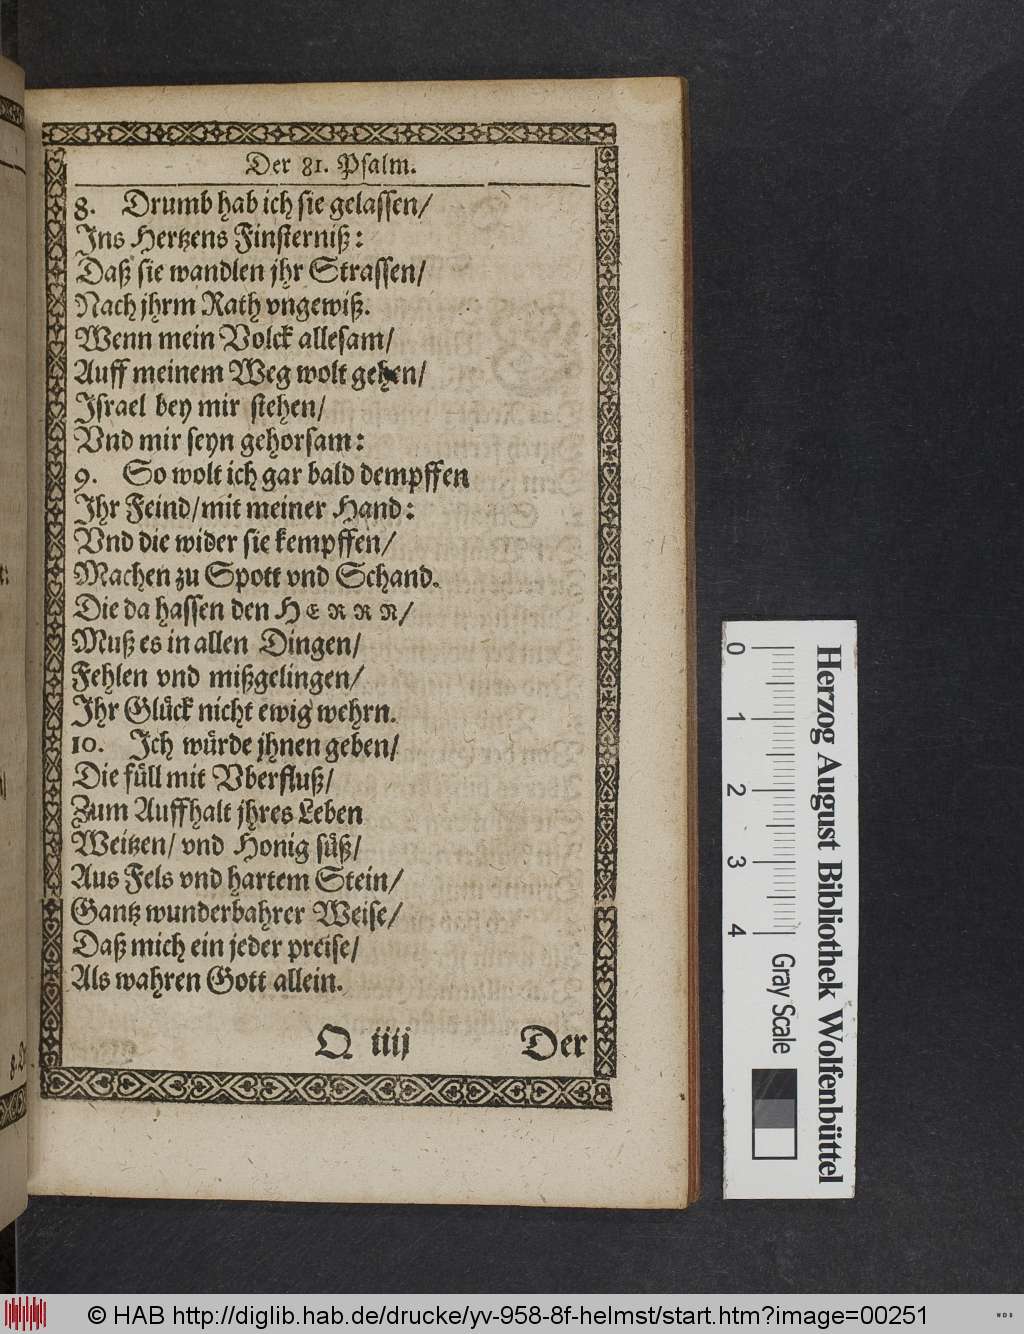 Der 81. Psalm.
8. Drumb hab ich sie gelassen/
Ins Hertzens Finsterniß:
Daß sie wandlen jhr Strassen/
Nach jhrm Rath vngewiß.
Wenn mein Volck allesam/
Auff meinem Weg wolt gehen/
Israel bey mir stehen/
Vnd mir seyn gehorsam:
9. So wolt ich gar bald dempffen
Ihr Feind/mit meiner Hand:
Vnd die wider sie kempffen/
Machen zu Spott vnd Schand.
Die da hassen den HERRN/
Muß es in allen Dingen/
Fehlen vnd mißgelingen/
Ihr Glück nicht ewig wehrn.
10. Ich würde jhnen geben/
Die füll mit Vberfluß/
Zum Auffhalt jhres Leben
Weitzen/ vnd Honig süß/
Aus Fels vnd hartem Stein/
Gantz wunderbahrer Weise/
Daß mich ein jeder preise/
Als wahren Gott allein.
Q iiij Der
Herzog August Bibliothek Wolfenbüttel
0 1 2 3 4 Gray Scale
© HAB http://diglib.hab.de/drucke/yv-958-8f-helmst/start.htm?image=00251